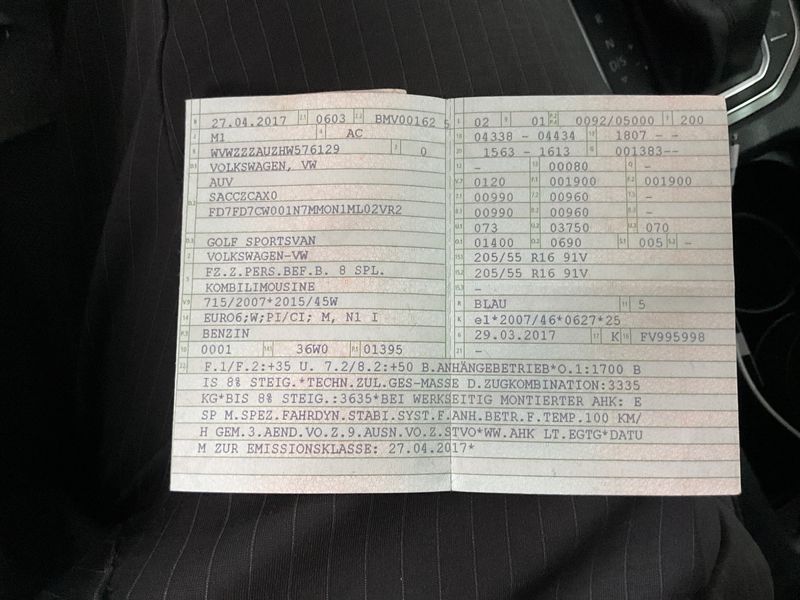 27.04.2017 0603 BMV00162 5
M1 AC
WVWZZZAUZHW576129 0
VOLKSWAGEN, VW
AUV
SACCZCAX0
FD7FD7CW001N7MMON1ML02VR2
GOLF SPORTSVAN
VOLKSWAGEN-VW
FZ.Z.PERS.BEF.B. 8 SPL.
KOMBILIMOUSINE
715/2007*2015/45W
EURO6;W;PI/CI; M, N1 I
BENZIN
0001 36W0 01395
02 01 0092/05000 200
04338 - 04434 1807 - -
1563 - 1613 001383--
- 00080 -
0120 001900 001900
00990 00960 -
00990 00960 -
073 03750 070
01400 0690 005 -
205/55 R16 91V
205/55 R16 91V
-
BLAU 5
e1*2007/46*0627*25
29.03.2017 K FV995998
-
F.1/F.2:+35 U. 7.2/8.2:+50 B.ANHÄNGEBETRIEB*O.1:1700 B
IS 8% STEIG.*TECHN.ZUL.GES-MASSE D.ZUGKOMBINATION:3335
KG*BIS 8% STEIG.:3635*BEI WERKSEITIG MONTIERTER AHK: E
SP M.SPEZ.FAHRDYN.STABI.SYST.F.ANH.BETR.F.TEMP.100 KM/
H GEM.3.AEND.VO.Z.9.AUSN.VO.Z.STVO*WW.AHK LT.EGTG*DATU
M ZUR EMISSIONSKLASSE: 27.04.2017*